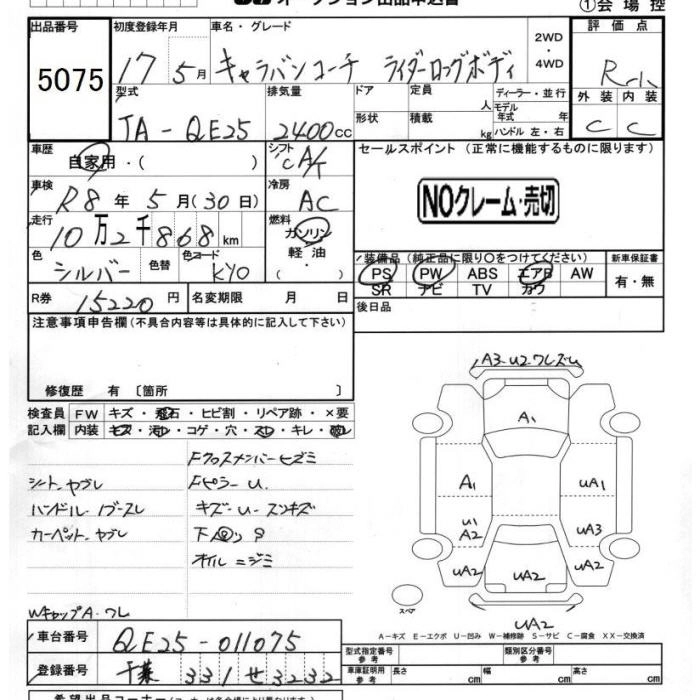 オークション出品申込書
①会場控
出品番号 初度登録年月 車名・グレード 2WD ・ 4WD 評価点
5075 17 5月 キャラバンコーチ ライダーロングボディ
型式 排気量 ドア 定員 人 ディーラー・並行 モデル年式 年式 外装 内装
TA-QE25 2400cc 形状 積載 kg ハンドル 左・右 C C
車歴 自家用・( ) シフト CA/T セールスポイント(正常に機能するものに限ります)
車検 R8年 5月(30日) 冷房 AC NOクレーム・売切
走行 10万2千868km 燃料 ガソリン 軽油 ・( )
色 シルバー 色替 色コード KY0
装備品(純正品に限り○をつけてください) 新車保証書
PS PW ABS エアB AW 有・無
SR ナビ TV カワ
R券 15220円 名変期限 月 日 後日品
注意事項申告欄(不具合内容等は具体的に記入して下さい)
修復歴 有 〔箇所 〕
検査員記入欄 FW キズ・飛石・ヒビ割・リペア跡・×要
内装 キズ・汚れ・コゲ・穴・スレ・キレ・破れ
Fクロスメンバーヒズミ
シートヤブレ FピラーU.
ハンドルノブースレ キズ-U-スリキズ
カーペットヤブレ
オイルニジミ
WキャップA・ワレ
A3・U2ワレズム
A1
A1 UA1
U1 A2 UA3
UA2 UA2 UA2
スペア UA2
A-キズ E-エクボ U-凹み W-補修跡 S-サビ C-腐食 XX-交換済
車台番号 QE25-011075
型式指定番号 参考 類別区分番号 参考
登録番号 千葉 331 せ 3232
車庫証明用 参考 長さ cm 幅 cm 高さ cm
希望出品コーナー